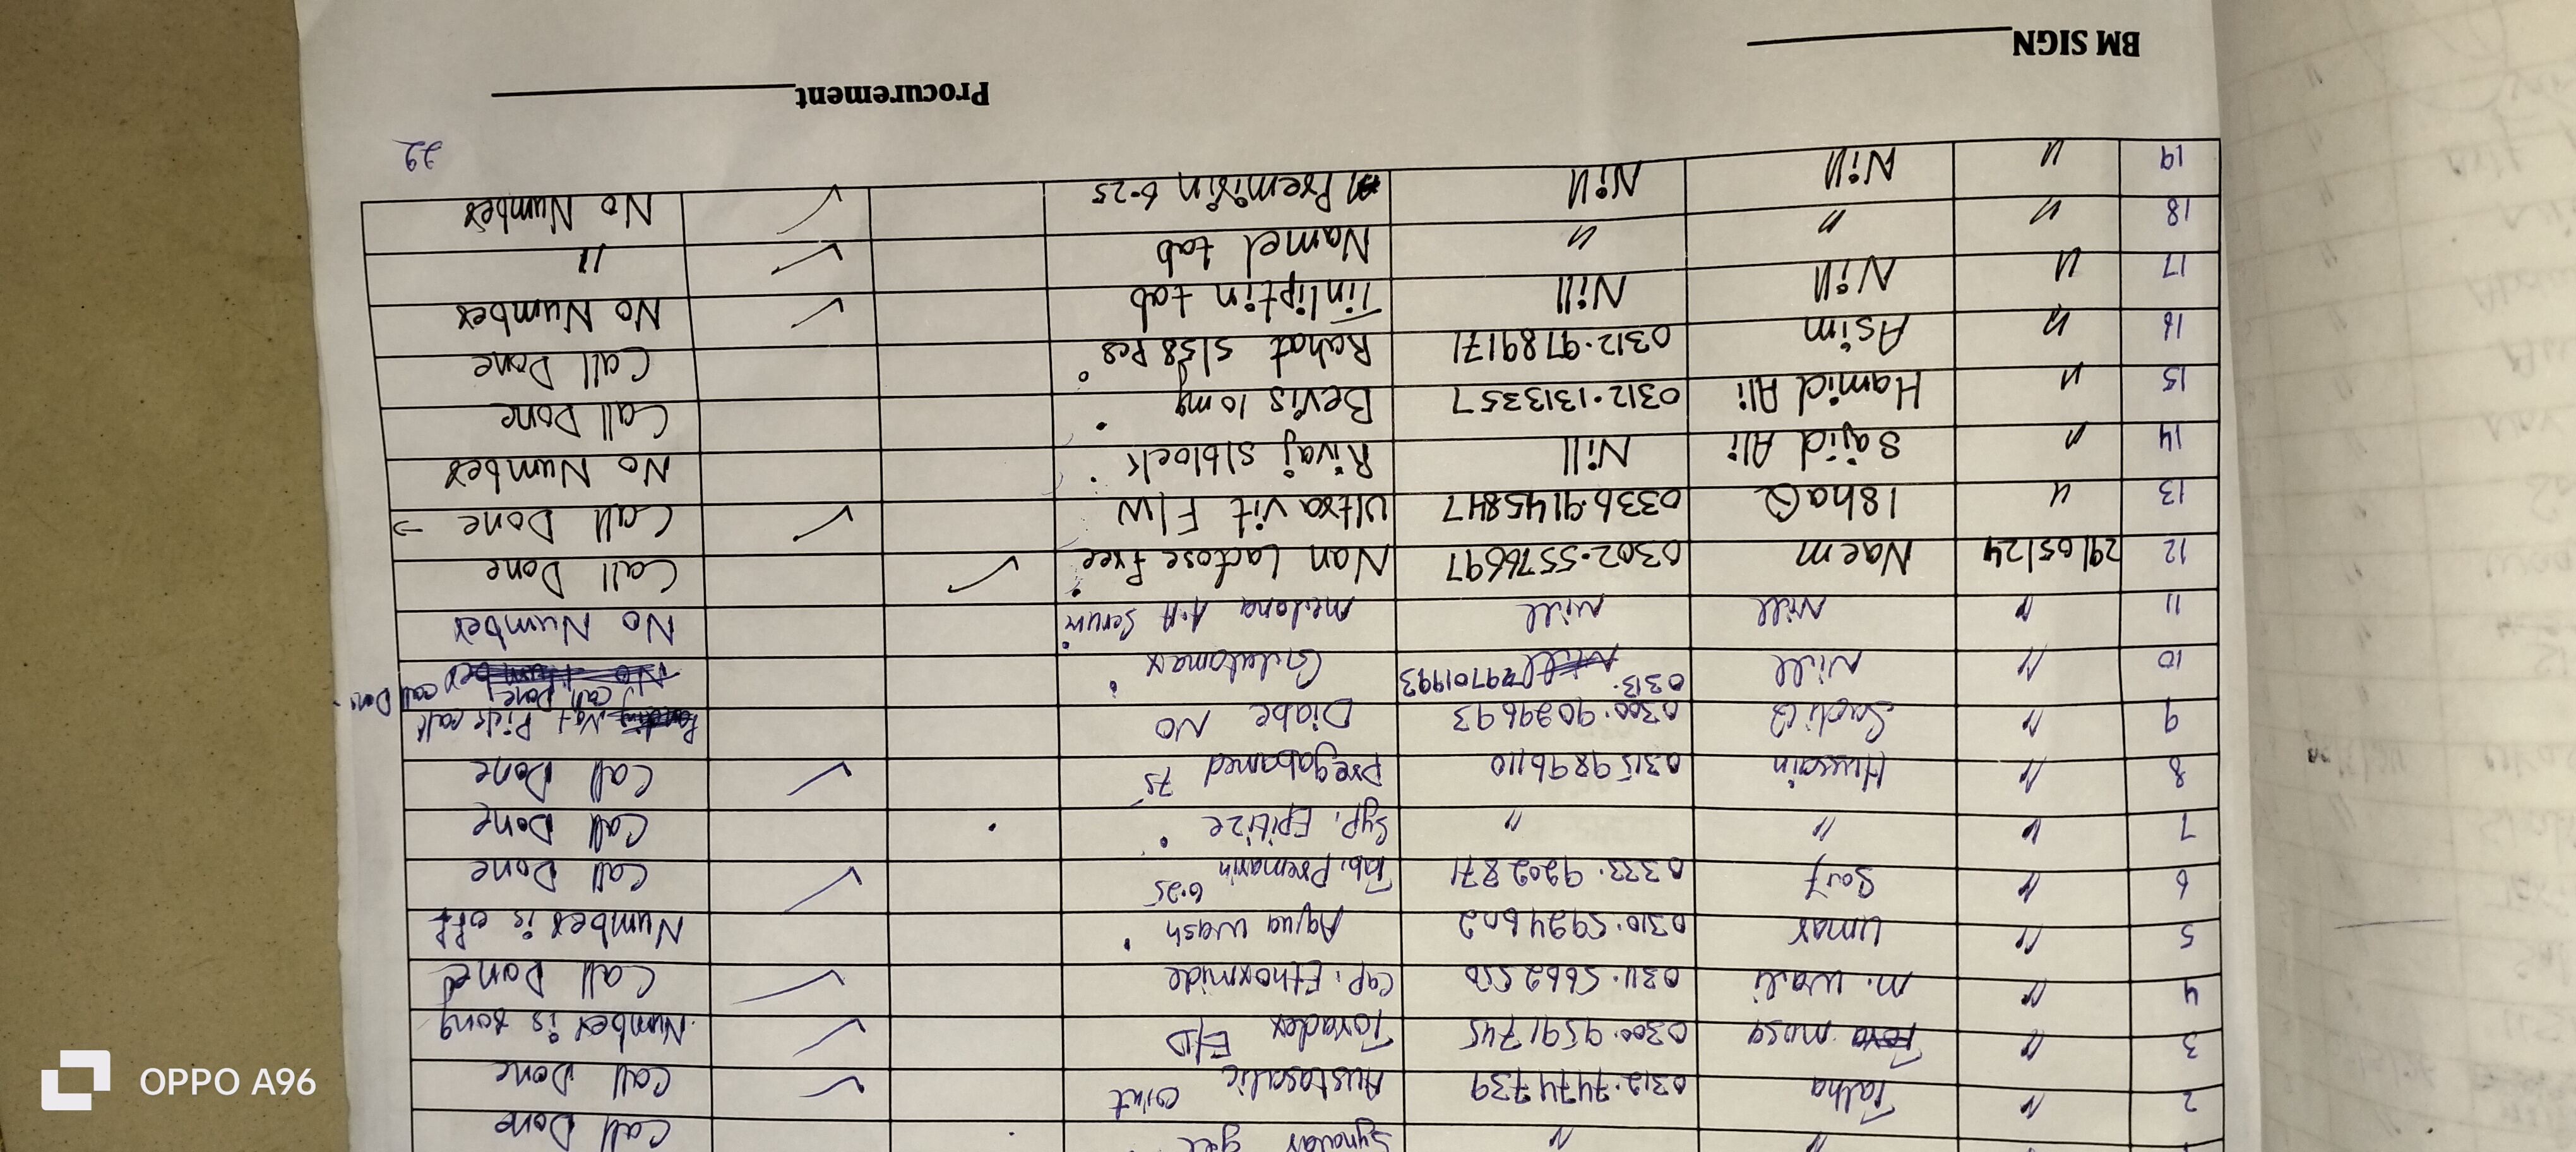 1 " " " Synovar gel Call Done
2 " Talha 0312.7474739 Austosalic oint Call Done
3 " mosa 0300.9591745 Toradex E/D Number is rong
4 " m. wali 0311.5662550 Cap. Ethoxmide Call Done
5 " Umar 0310.5924602 Aqua wash Number is off
6 " Saif 0333.9202871 Tab. Premarin 6.25 Call Done
7 " " " Syp. Epitize Call Done
8 " Hussain 03159896110 Pregabamed 75 Call Done
9 " SadiQ 0300.9029693 Diabe NO Not Pick call
Call Done
10 " Nill 0313.9701993 Glutamax call Done
11 " Nill Nill melona A.A Serum No Number
12 29/05/24 Naem 0302.5576697 Nan Lactose free Call Done
13 " IshaQ 0336.9145847 Ultra vit F/W Call Done →
14 " Sajid Ali Nill Rivaj s/block No Number
15 " Hamid Ali 0312.1313357 Bevis 10 mg Call Done
16 " Asim 0312.9789171 Rahat 5/38 Pcs Call Done
17 " Nill Nill Tinliptin tab No Number
18 " " " Namel tab "
19 " Nill Nill Premisin 6.25 No Number
29
Procurement
BM SIGN
OPPO A96